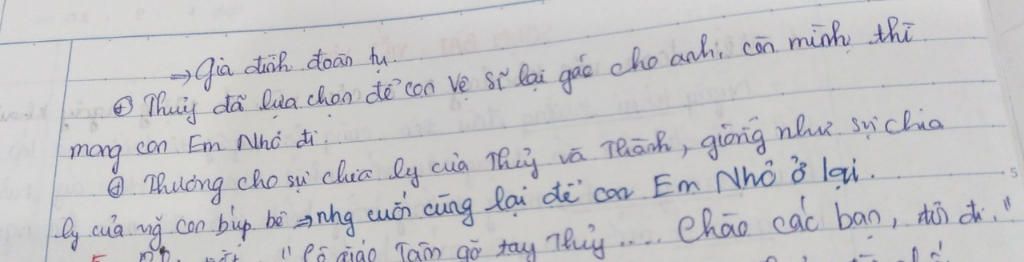 → Gia đình đoàn tụ.
⊕ Thuỷ đã lựa chọn để con Vệ Sĩ lại gác cho anh, còn mình thì
mang con Em Nhỏ đi.
⊕ Thương cho sự chia ly của Thuỷ và Thành, giống như sự chia
ly của ng̃ con búp bê → nhg cuối cùng lại để con Em Nhỏ ở lại.
"Cô giáo Tâm gỡ tay Thuỷ .... Chào các bạn, tôi đi."